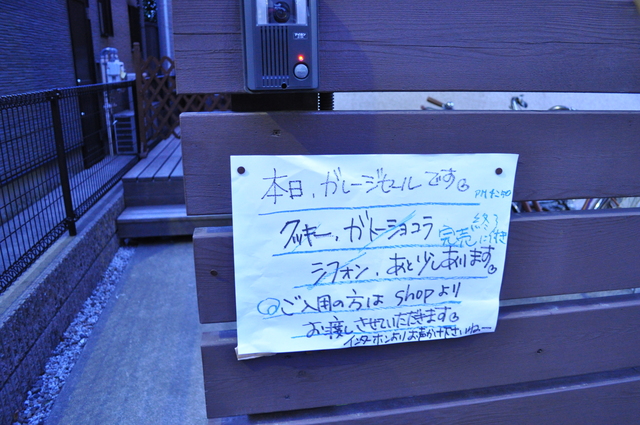 本日、ガレージセールです。
クッキー、ガトーショコラ
完売に付き
終了
シフォン、あと少しあります。
ご入用の方は shopより
お渡しさせていただきます。
インターホンよりお声かけ下さいねー